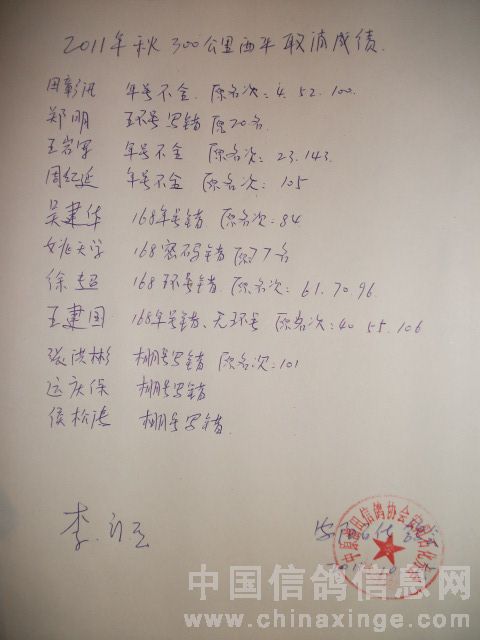 2011年秋300公里西平取消成绩.
田彰汛 年号不全. 原名次: 4. 52. 100.
郑明 五环号写错 原20名.
王宏军 年号不全 原名次: 23. 143.
周红延 年号不全 原名次: 105
吴建华 168年号错 原名次: 84
姚天学 168密码错 原77名
徐超 168环号错. 原名次: 61. 70. 96.
王建国 168年号错、无环号 原名次: 40 55. 106
张洪彬 棚号写错 原名次: 101
运庆保 棚号写错
侯松涛 棚号写错.
李
信鸽协会
中国信鸽信息网
www.chinaxinge.com